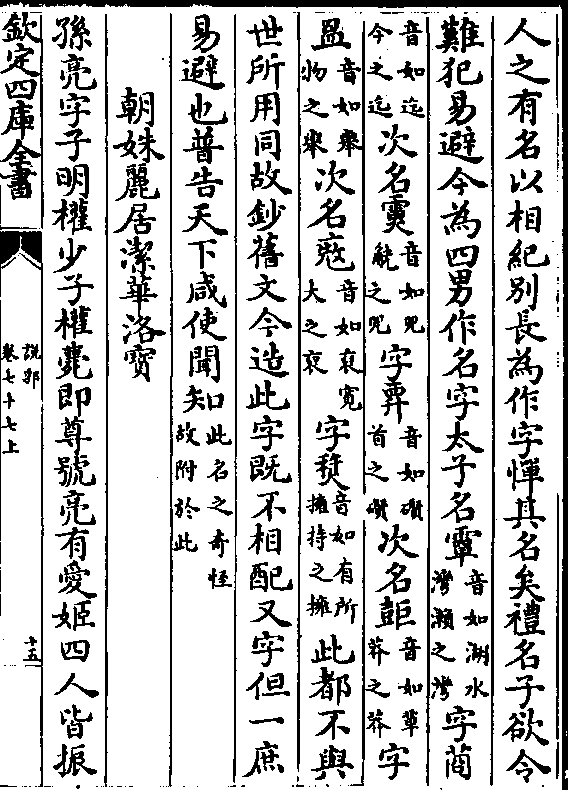 人之有名以相紀別長為作字憚其名矣禮名子欲令
難犯易避今為四男作名字太子名𩅦音如湖水灣瀬之灣字莔
音如迄今之迄次名𩃙音如兕觥之兕字𢍏音如礥首之礥次名𧊔音如草莽之莽字
昷音如舉物之舉次名𠅨音如裒寬大之裒字㷏音如有所擁持之擁此都不與
世所用同故鈔舊文今造此字既不相配又字但一庶
易避也普告天下咸使聞知此名之奇恠故附於此
朝姝麗居潔華洛寶
孫亮字子明權少子權薨即尊號亮有愛姬四人皆振
欽定四庫全書
說郛
卷七十七上
十五